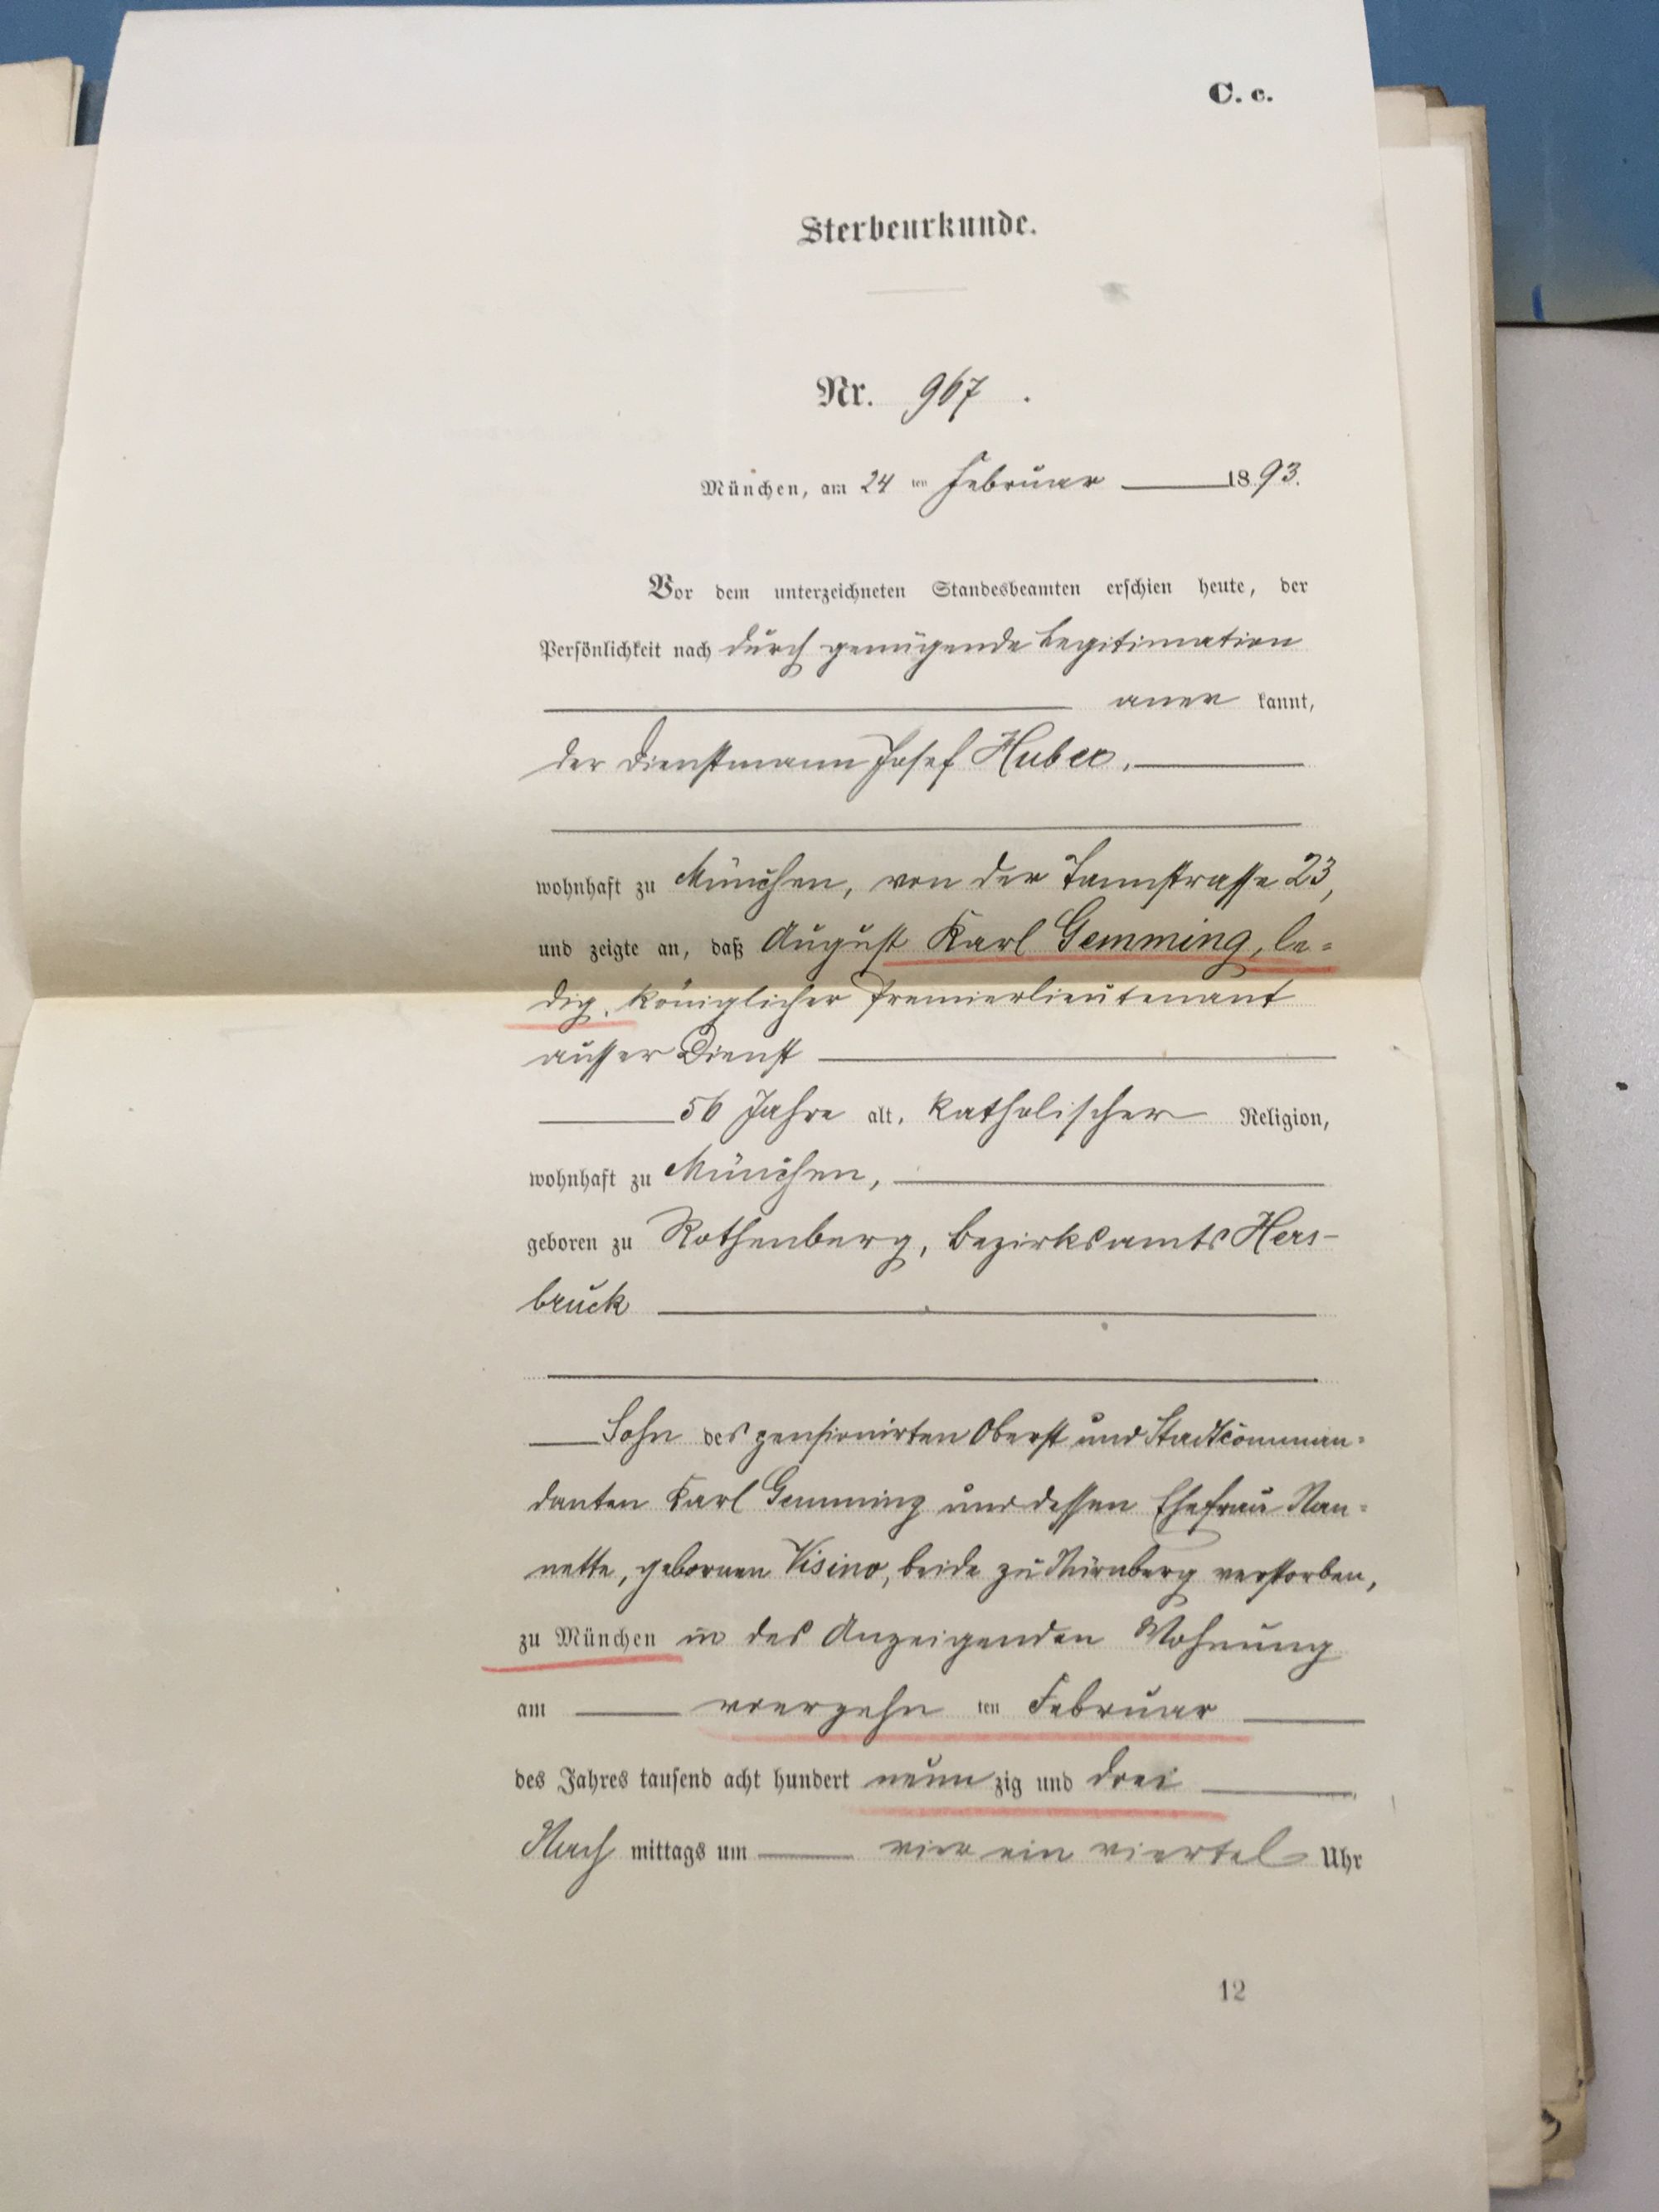 C. c.
Sterbeurkunde.
Nr. 967.
München, am 24 ten Februar 1893.
Vor dem unterzeichneten Standesbeamten erschien heute, der
Persönlichkeit nach durch genügende Legitimation
aner kannt,
der Dienstmann Josef Huber,
wohnhaft zu München, von der Tannstrasse 23,
und zeigte an, daß August Karl Gemming, le=
dig, königlicher Premierlieutenant
ausser Dienst
56 Jahre alt, katholischer Religion,
wohnhaft zu München,
geboren zu Rothenberg, Bezirksamts Hers-
bruck
Sohn des pensionirten Oberst und Stadtcomman=
danten Karl Gemming und dessen Ehefrau Nan=
nette, gebornen Visino, beide zu Nürnberg verstorben,
zu München in des Anzeigenden Wohnung
am vierzehn ten Februar
des Jahres tausend acht hundert neun zig und drei
Nach mittags um vier ein viertel Uhr
12